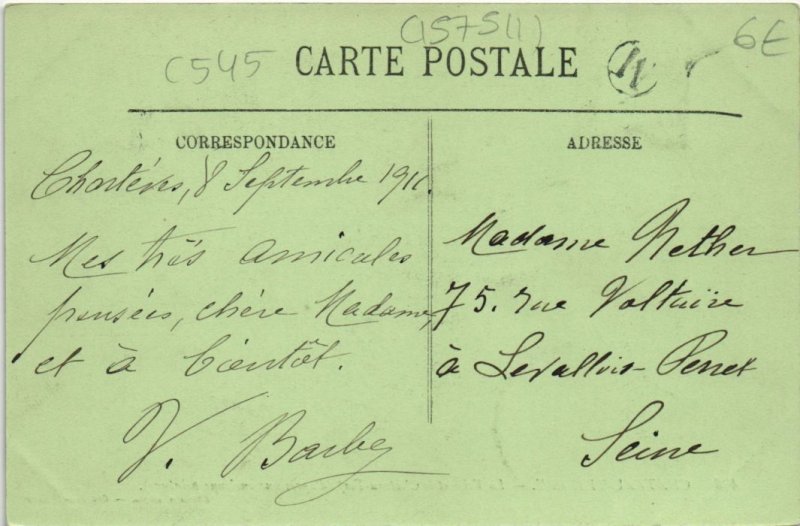 (1575(1)
6E
C545
CARTE POSTALE
CORRESPONDANCE
Chartèves, 8 Septembre 1911.
Mes très amicales
pensées, chère Madame,
et à bientôt.
V. Barbey
ADRESSE
Madame Nether
75. rue Voltaire
à Levallois-Perret
Seine